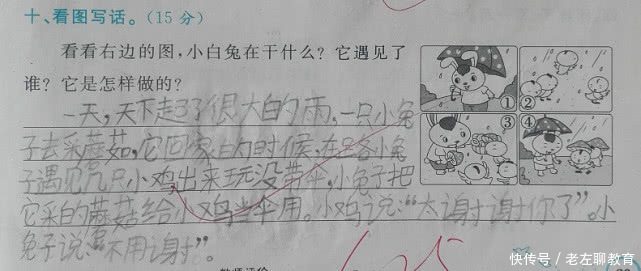 十、看图写话。(15分)
看看右边的图,小白兔在干什么?它遇见了
谁?它是怎样做的?
一天,天下起了很大的雨,一只小兔
子去采蘑茹,它回家的时候,在路小兔
子遇见几只小鸡出来玩没带伞,小兔子把
它采的蘑菇给小鸡当伞用。小鸡说:“太谢谢你了”。小
兔子说:“不用谢”。
① ②
③ ④
快传号/老左聊教育